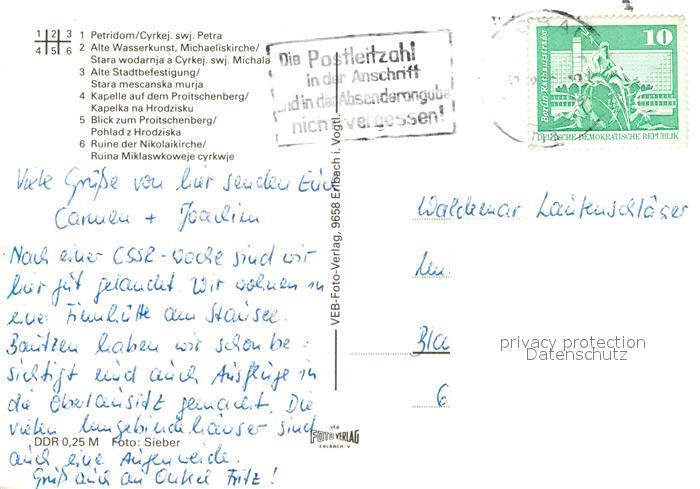 1 Petridom/Cyrkej. swj. Petra
2 Alte Wasserkunst, Michaeliskirche/
Stara wodarnja a Cyrkej. swj. Michala
3 Alte Stadtbefestigung/
Stara mescanska murja
4 Kapelle auf dem Proitschenberg/
Kapelka na Hrodzisku
5 Blick zum Proitschenberg/
Pohlad z Hrodziska
6 Ruine der Nikolaikirche/
Ruina Miklawskoweje cyrkwje
1 2 3
4 5 6
Die Postleitzahl
in der Anschrift
und in der Absenderangabe
nicht vergessen!
10
Berlin, Rathausstraße
DEUTSCHE DEMOKRATISCHE REPUBLIK
Viele Grüße von hier senden Euch
Carmen + Joachim
Nach einer CSSR-Woche sind wir
hier gut gelandet. Wir wohnen in
einer Finnhütte am Stausee.
Bautzen haben wir schon be=
sichtigt und auch Ausflüge in
die Oberlausitz gemacht. Die
vielen Umgebindehäuser sind
auch eine Augenweide.
Gruß auch an Onkel Fritz!
VEB-Foto-Verlag, 9658 Erlbach i. Vogtl.
Waldemar Lautenschläger
Bla
6
privacy protection
Datenschutz
DDR 0,25 M Foto: Sieber
VEB
FOTO VERLAG
ERLBACH-V